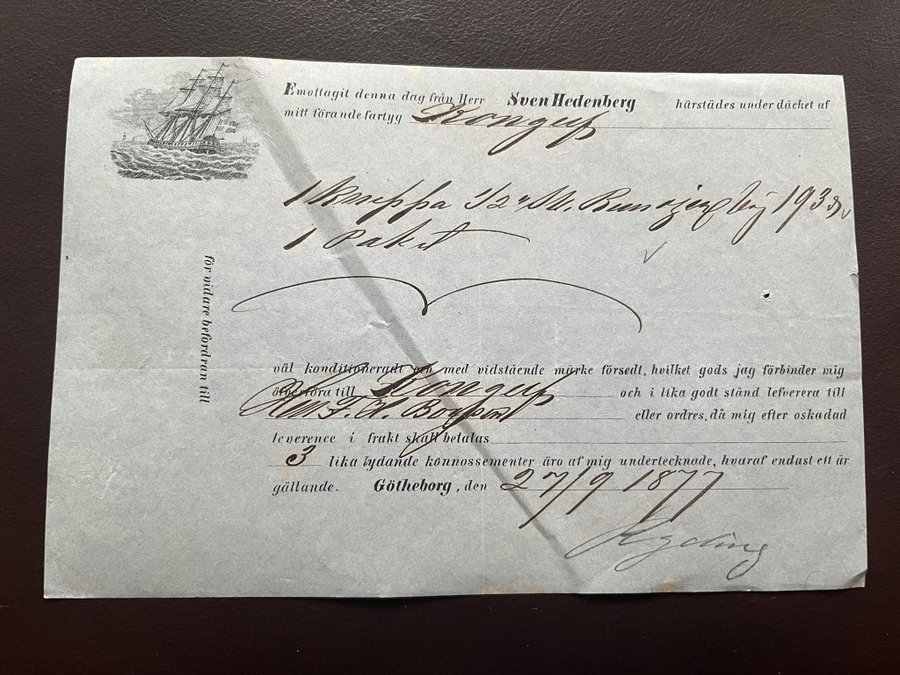 Emottagit denna dag från Herr Sven Hedenberg härstädes under däcket af
mitt förande fartyg
1 1/2 193
1 Paket
för vidare befordran till
väl konditioneradt och med vidstående märke försedt, hvilket gods jag förbinder mig
öfverföra till och i lika godt stånd lefverera till
Herr F. A. eller ordres, då mig efter oskadad
leverence i frakt skall betalas
3 lika lydande konnossementer äro af mig undertecknade, hvaraf endast ett är
gällande. Götheborg, den 27/9 1877